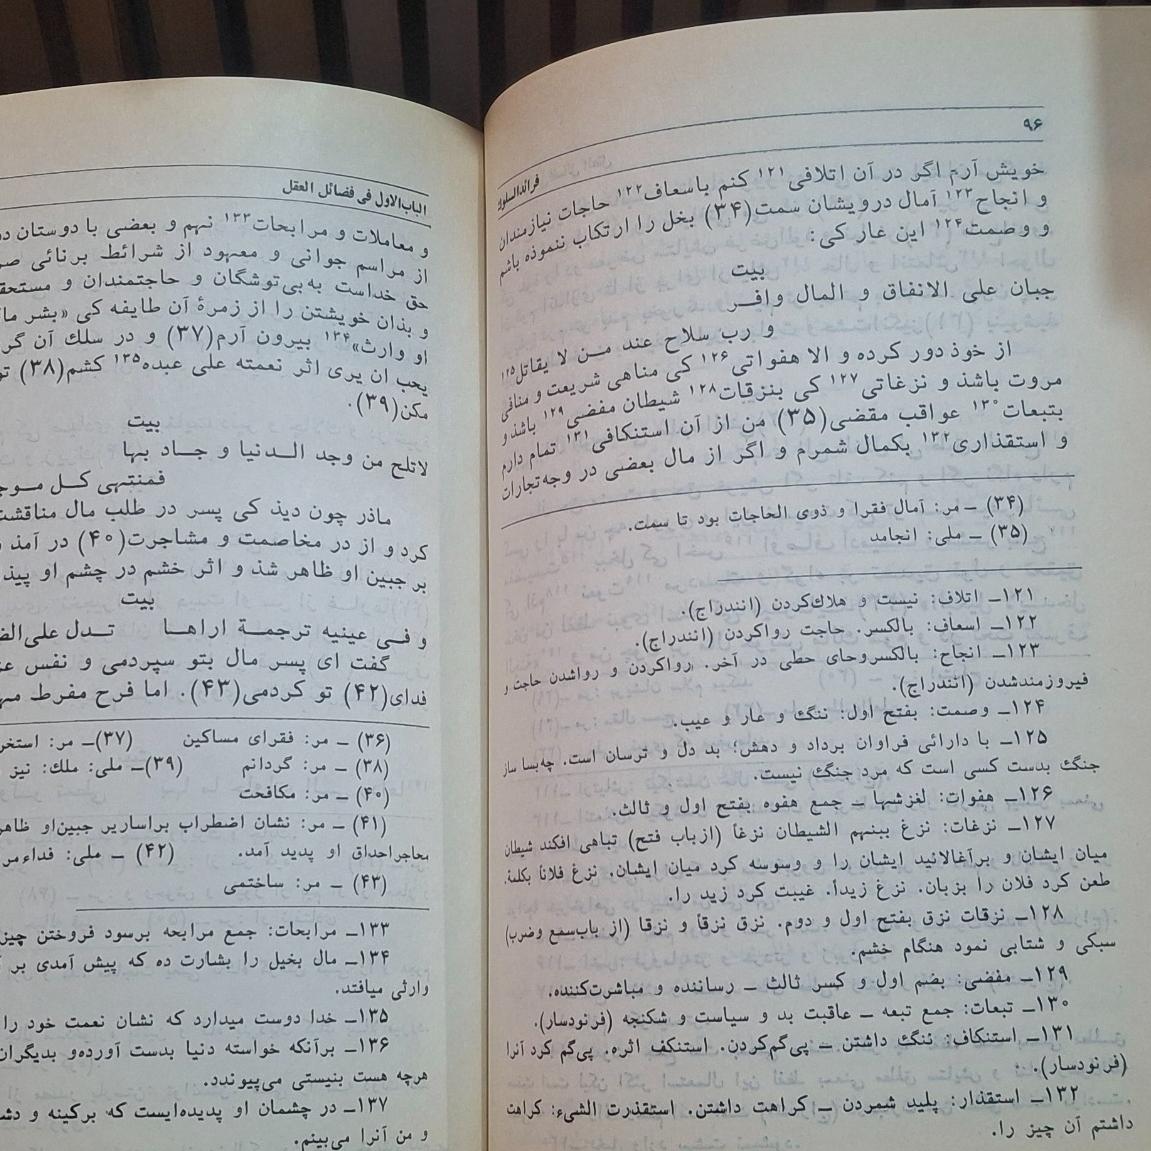 ۹۶
فرائدالسلوك
خویش آرم اگر در آن اتلافی۱۲۱ کنم باسعاف۱۲۲ حاجات نیازمندان
و انجاح۱۲۳ آمال درویشان سمت(۳۴) بخل را ارتکاب ننموده باشم
و وصمت۱۲۴ این عار کی:
بیت
جبان علی الانفاق و المال وافـر
و رب سلاح عند مـن لا یقاتل۱۲۵
از خوذ دور کرده و الا هفواتی۱۲۶ کی مناهی شریعت و منافی
مروت باشذ و نزغاتی۱۲۷ کی بنزقات۱۲۸ شیطان مفضی۱۲۹ باشذ و
بتبعات۱۳۰ عواقب مقضی(۳۵) من از آن استنکافی۱۳۱ تمام دارم
و استقذاری۱۳۲ بکمال شمرم و اگر از مال بعضی در وجه تجارات
(۳۴) ــ مر: آمال فقرا و ذوی الحاجات بود تا سمت.
(۳۵) ــ ملی: انجامد
۱۲۱ــ اتلاف: نیست و هلاك‌کردن (انندراج).
۱۲۲ــ اسعاف: بالکسر. حاجت رواکردن (انندراج).
۱۲۳ــ انجاح: بالکسروحای حطی در آخر. رواکردن و رواشدن حاجت و
فیروزمندشدن (انندراج).
۱۲۴ــ وصمت: بفتح اول: ننگ و عار و عیب.
۱۲۵ــ با دارائی فراوان برداد و دهش؛ بد دل و ترسان است. چه‌بسا ساز
جنگ بدست کسی است که مرد جنگ نیست.
۱۲۶ــ هفوات: لغزشها ــ جمع هفوه بفتح اول و ثالث.
۱۲۷ــ نزغات: نزغ بینهم الشیطان نزغاً (ازباب فتح) تباهی افکند شیطان
میان ایشان و برآغالانید ایشان را و وسوسه کرد میان ایشان. نزغ فلاناً بکلمة.
طعن کرد فلان را بزبان. نزغ زیداً. غیبت کرد زید را.
۱۲۸ــ نزقات نزق بفتح اول و دوم. نزق نزقاً و نزقا (از باب‌سمع وضرب)
سبکی و شتابی نمود هنگام خشم.
۱۲۹ــ مفضی: بضم اول و کسر ثالث ــ رساننده و مباشرت‌کننده.
۱۳۰ــ تبعات: جمع تبعه ــ عاقبت بد و سیاست و شکنجه (فرنودسار).
۱۳۱ــ استنکاف: ننگ داشتن ــ پی‌گم‌کردن. استنکف اثره. پی‌گم کرد آنرا
(فرنودسار).
۱۳۲ــ استقذار: پلید شمردن ــ کراهت داشتن. استقذرت الشیء: کراهت
داشتم آن چیز را.
الباب‌الاول فی فضائل العقل
و معاملات و مرابحات۱۳۳ نهم و بعضی با دوستان
از مراسم جوانی و معهود از شرائط برنائی
حق خداست به‌بی‌توشگان و حاجتمندان و
و بذان خویشتن را از زمرهٔ آن طایفه کی «بشر
او وارث»۱۳۴ بیرون آرم(۳۷) و در سلك آن
یحب ان یری اثر نعمته علی عبده۱۳۵ کشم(۳۸)
مکن(۳۹).
بیت
لاتلح من وجد الـدنیا و جـاد بـها
فمنتهی کـل
ماذر چون دیذ کی پسر در طلب مال مناقشت
کرد و از در مخاصمت و مشاجرت(۴۰) در آمذ
بر جبین او ظاهر شذ و اثر خشم در چشم او
بیت
و فـی عینیه ترجمـة اراهـا تـدل
گفت ای پسر مال بتو سپردمی و نفس
فدای(۴۲) تو کردمی(۴۳). اما فرح مفرط
(۳۶) ــ مر: فقرای مساکین (۳۷)ــ مر:
(۳۸) ــ مر: گردانم (۳۹)ــ ملی: ملك: نیز
(۴۰) ــ مر: مکافحت
(۴۱) ــ مر: نشان اضطراب براساریر جبین‌او
معاجراحداق او پدید آمد. (۴۲) ــ ملی:
(۴۳) ــ مر: ساختمی
۱۳۳ــ مرابحات: جمع مرابحه برسود فروختن
۱۳۴ــ مال بخیل را بشارت ده که پیش آمدی بر
وارثی میافتد.
۱۳۵ــ خدا دوست میدارد که نشان نعمت خود را
۱۳۶ــ برآنکه خواسته دنیا بدست آورده‌و
هرچه هست بنیستی می‌پیوندد.
۱۳۷ــ در چشمان او پدیده‌ایست که برکینه و
و من آنرا می‌بینم.